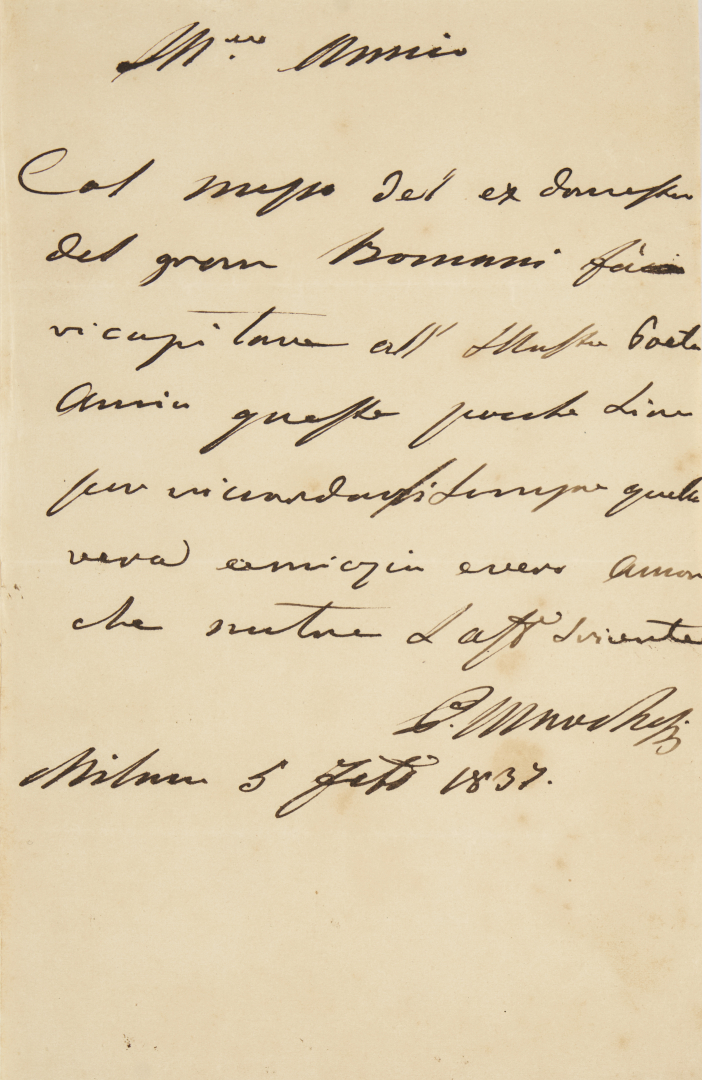 Amico
Col mezzo del ex domestico
del gran Romani fò
ricapitare all' Illustre Poeta
Amico queste poche Linee
per ricordarsi sempre quella
vera amicizia e vero Amore
che nutre L aff.º Scrivente
Milano 5 Feb.º 1837.